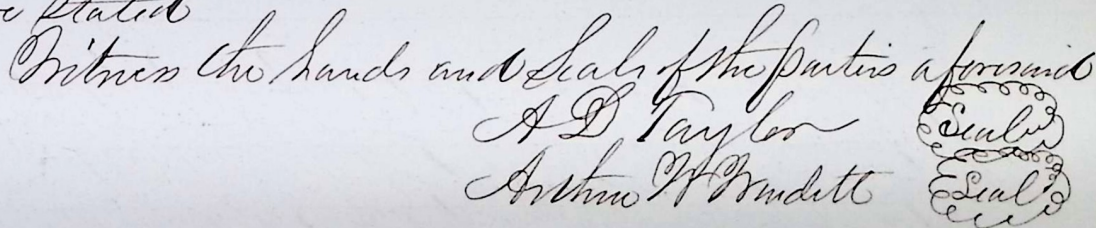 e stated
Witness the hands and Seals of the parties aforesaid
A D Taylor Seal
Arthur W Windett Seal